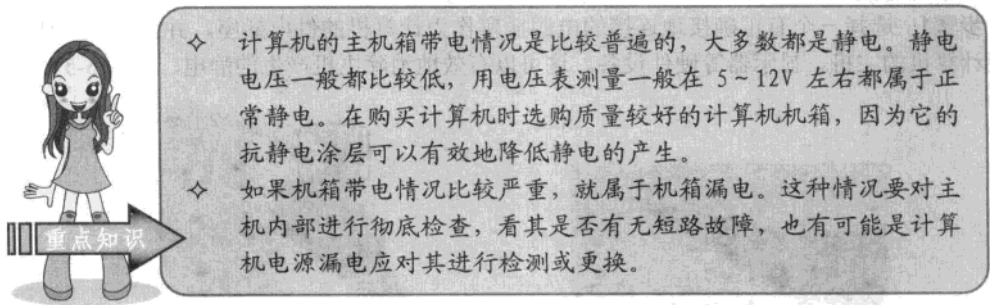 ✧ 计算机的主机箱带电情况是比较普遍的，大多数都是静电。静电
电压一般都比较低，用电压表测量一般在 5～12V 左右都属于正
常静电。在购买计算机时选购质量较好的计算机机箱，因为它的
抗静电涂层可以有效地降低静电的产生。
✧ 如果机箱带电情况比较严重，就属于机箱漏电。这种情况要对主
机内部进行彻底检查，看其是否有无短路故障，也有可能是计算
机电源漏电应对其进行检测或更换。
重点知识